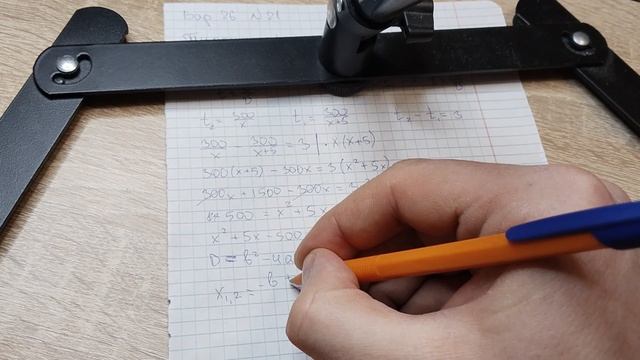 Вар 26 N 21
t₂ = 300/x t₁ = 300/(x+5) t₂ - t₁ = 3
300/x - 300/(x+5) = 3 | · x(x+5)
300(x+5) - 300x = 3(x²+5x)
300x + 1500 - 300x =
500 = x² + 5x
x² + 5x - 500
D = b² - 4a
x₁,₂ = -b